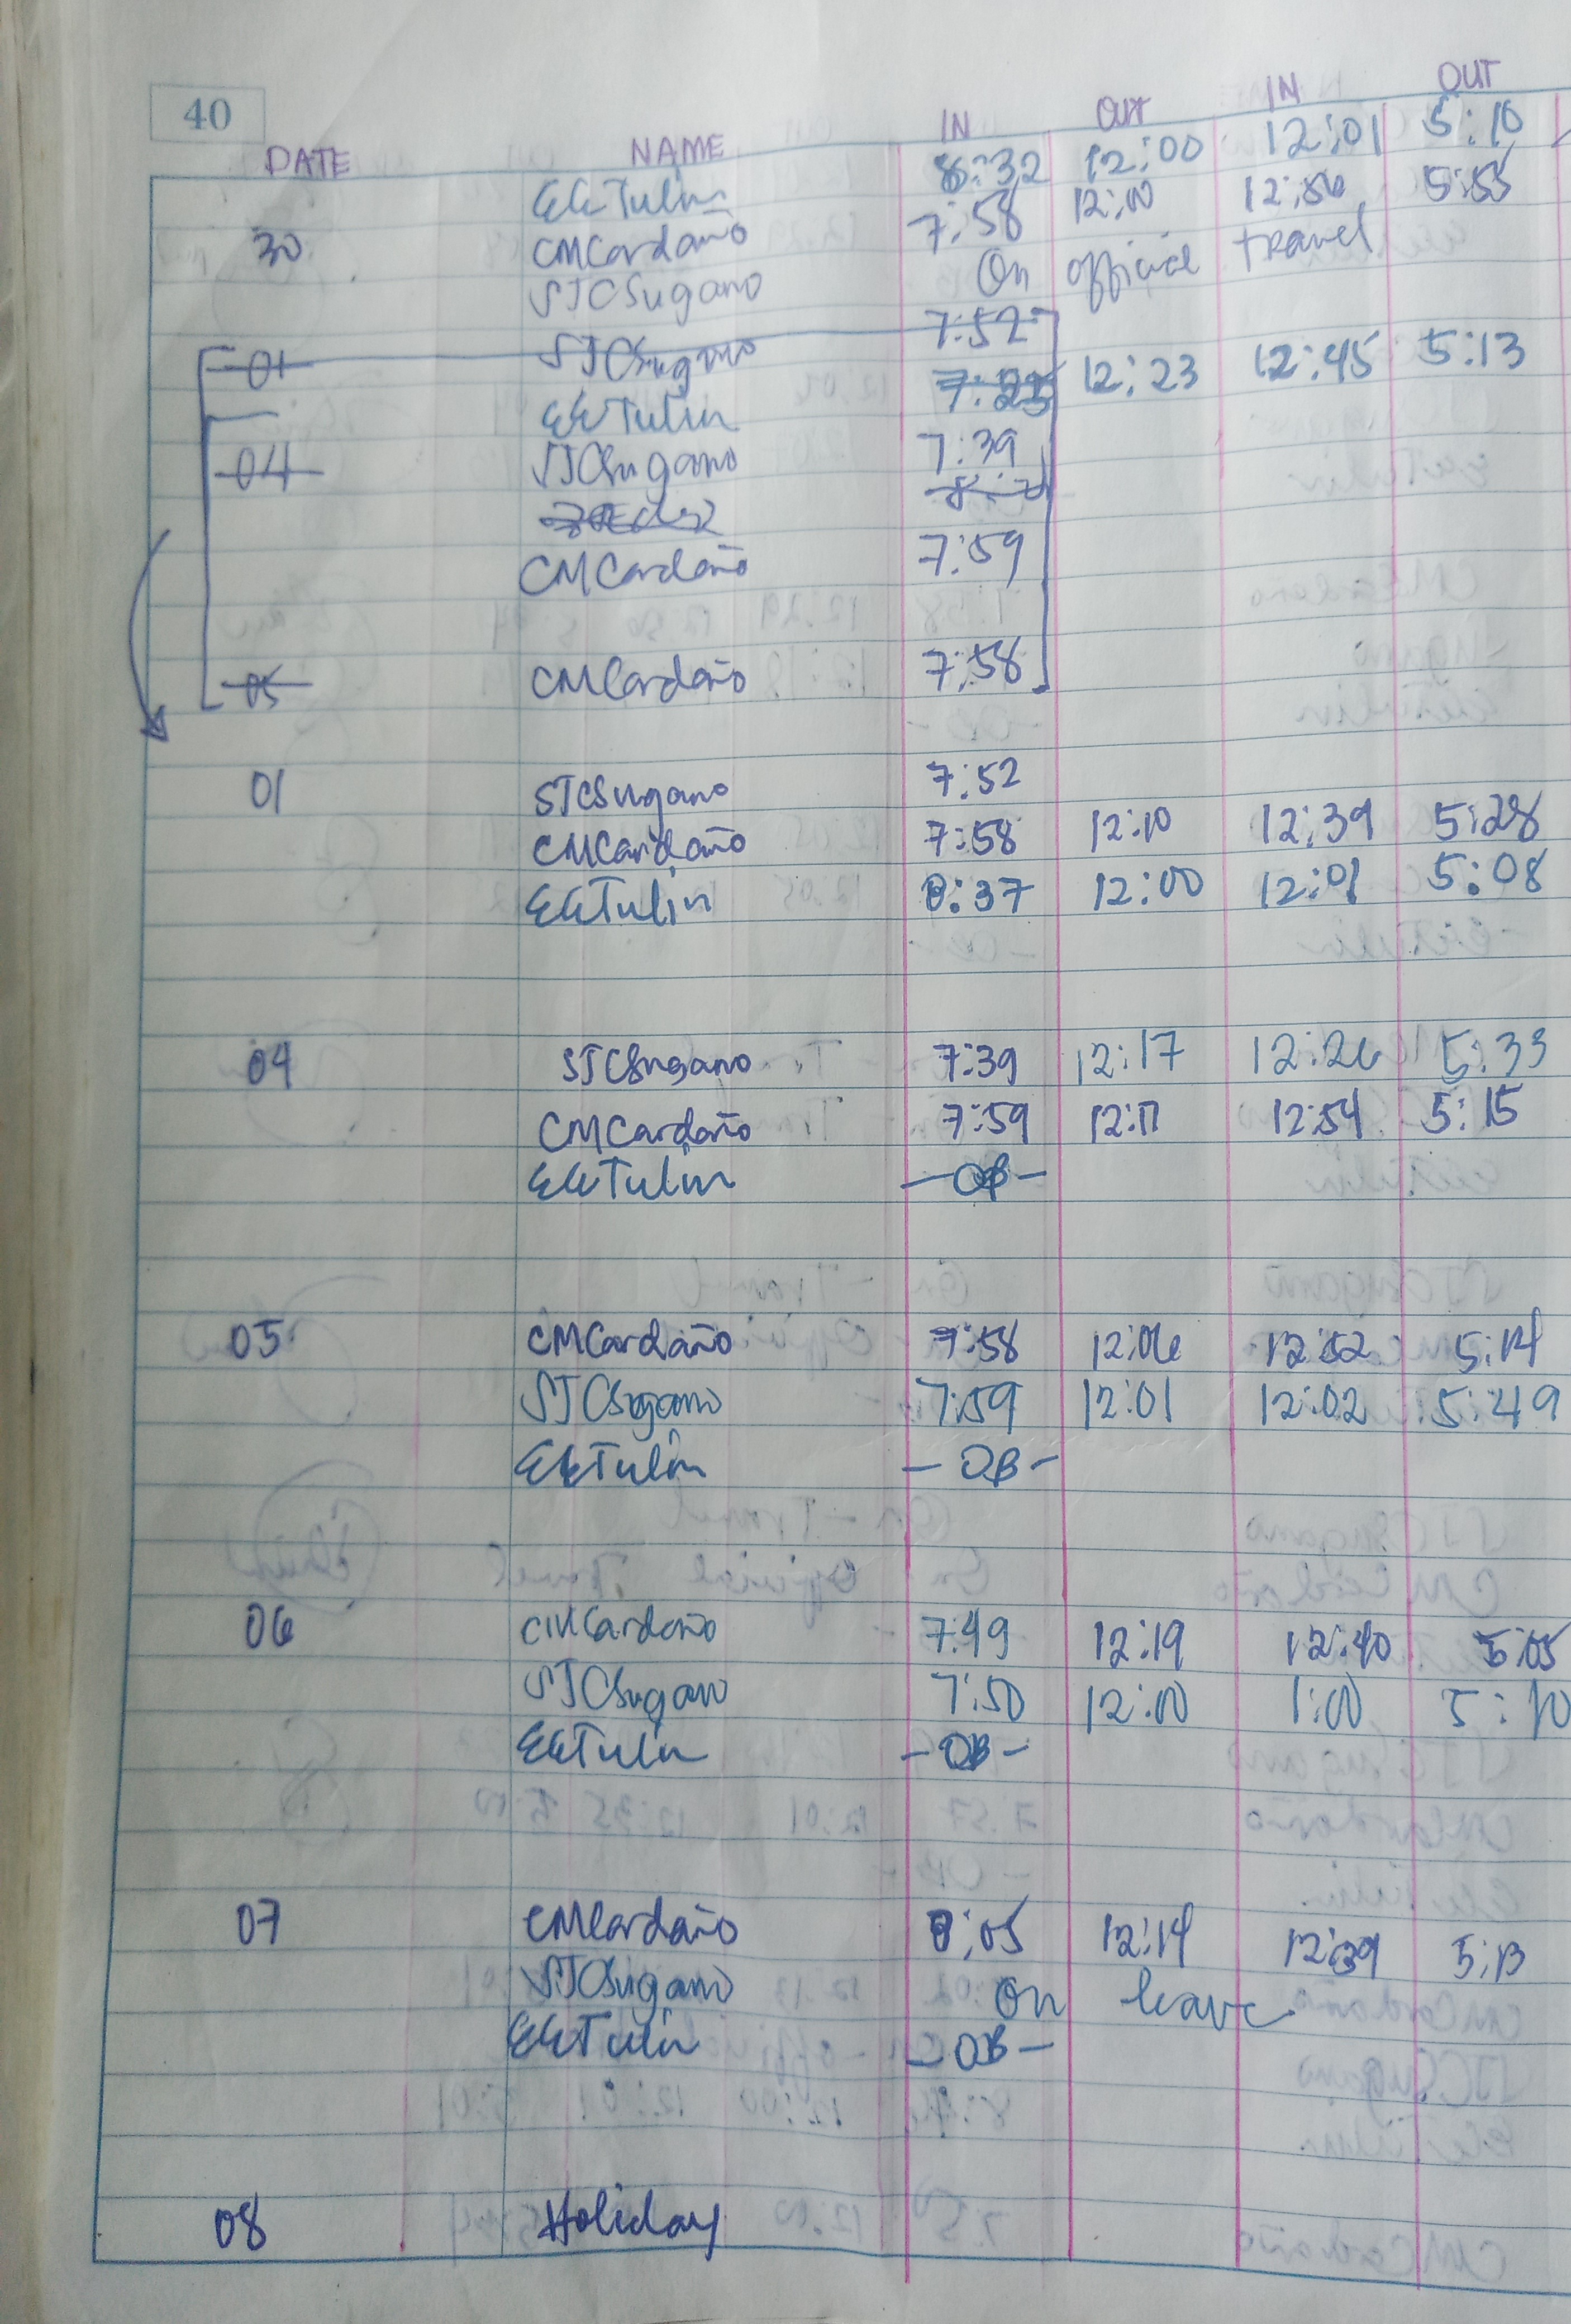 40
DATE NAME IN OUT IN OUT
EETulin 8:32 12:00 12:01 5:10
30 CMCardaño 7:58 12:00 12:56 5:55
STCSugano On official travel
01 STCSugano 7:52
EETulin 7:23 12:23 12:45 5:13
04 STCSugano 7:39
CMCardaño 7:59
05 CMCardaño 7:58
01 STCSugano 7:52
CMCardaño 7:58 12:10 12:39 5:28
EETulin 8:37 12:00 12:01 5:08
04 STCSugano 7:39 12:17 12:26 5:33
CMCardaño 7:59 12:11 12:54 5:15
EETulin -OB-
05 CMCardaño 7:58 12:06 12:52 5:14
STCSugano 7:59 12:01 12:02 5:49
EETulin -OB-
06 CMCardaño 7:49 12:19 12:40 5:05
STCSugano 7:50 12:00 1:00 5:10
EETulin -OB-
07 CMCardaño 8:05 12:14 12:39 5:13
STCSugano On leave
EETulin -OB-
08 Holiday